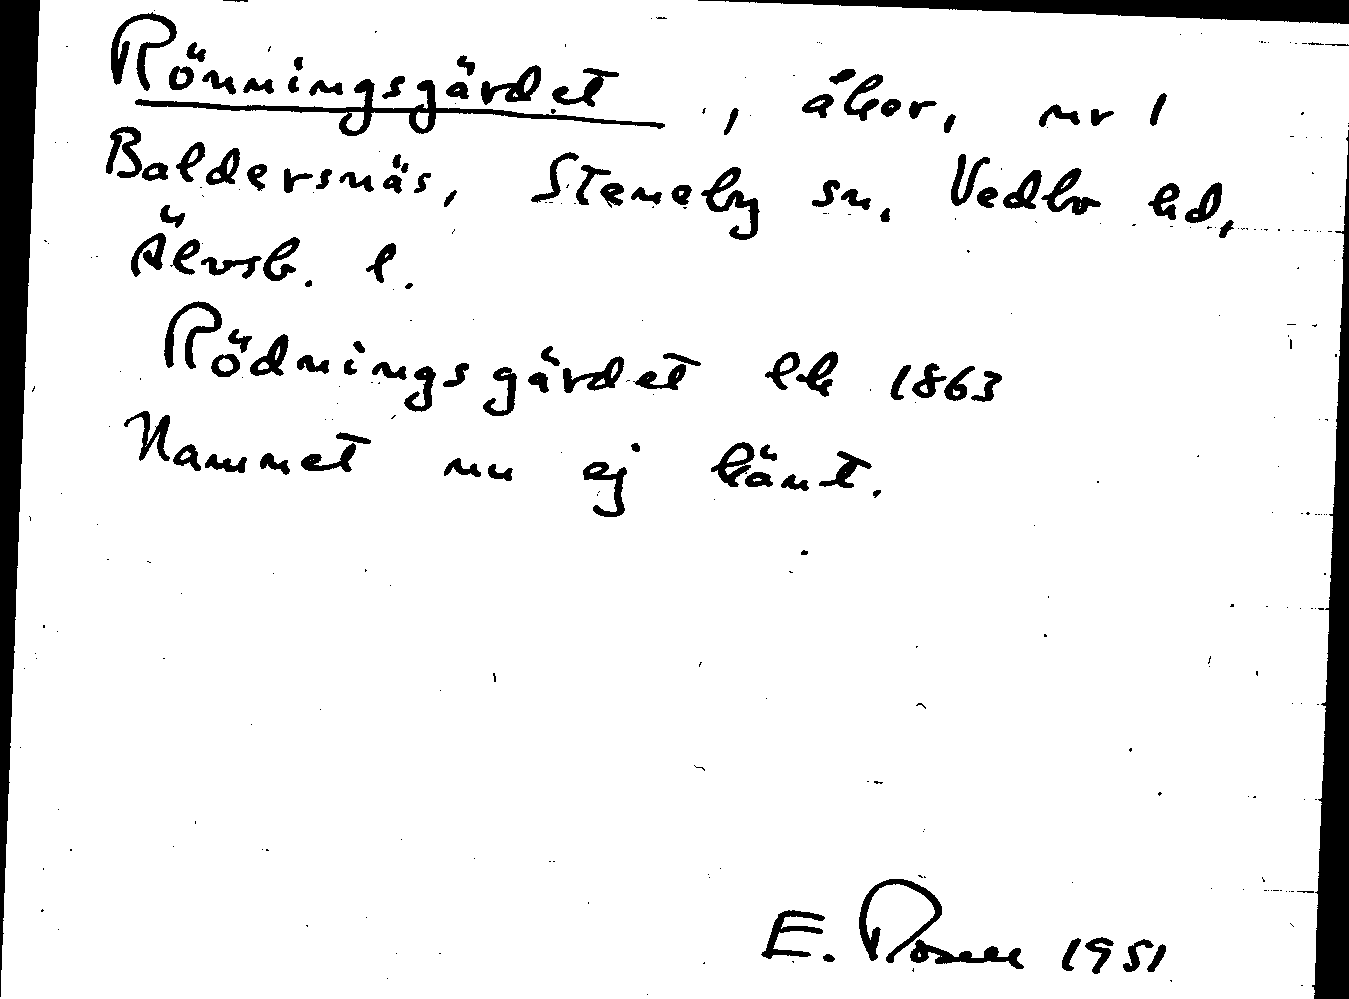 Rönningsgärdet, åker, nr 1
Baldersnäs, Steneby sn, Vedbo hd,
Älvsb. l.
Rödningsgärdet lk 1863
Namnet nu ej känt.
E. Rosell 1951